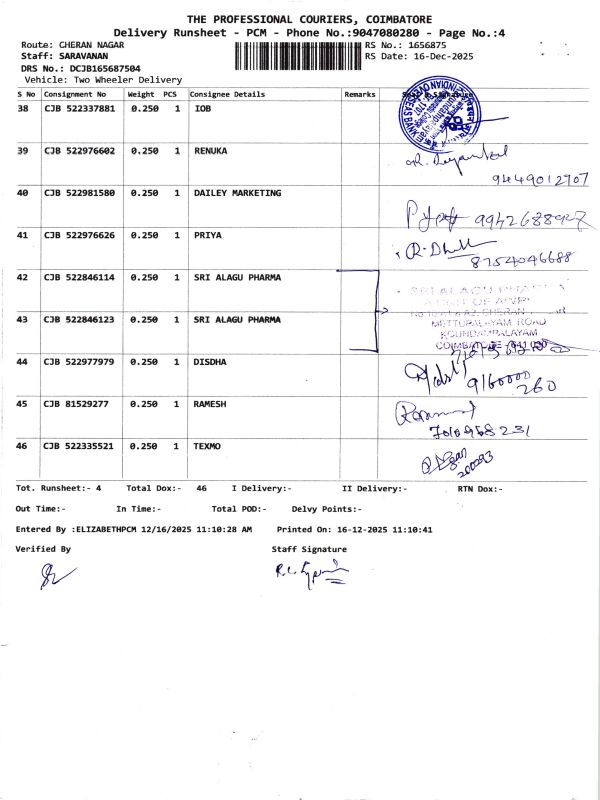 THE PROFESSIONAL COURIERS, COIMBATORE
Delivery Runsheet - PCM - Phone No.:9047080280 - Page No.:4
Route: CHERAN NAGAR RS No.: 1656875
Staff: SARAVANAN RS Date: 16-Dec-2025
DRS No.: DCJB165687504
Vehicle: Two Wheeler Delivery
S No Consignment No Weight PCS Consignee Details Remarks
38 CJB 522337881 0.250 1 IOB
39 CJB 522976602 0.250 1 RENUKA
9449012707
40 CJB 522981580 0.250 1 DAILEY MARKETING
41 CJB 522976626 0.250 1 PRIYA
8754046688
42 CJB 522846114 0.250 1 SRI ALAGU PHARMA
SRI ALAGU PHARMA
43 CJB 522846123 0.250 1 SRI ALAGU PHARMA
METTUPALAYAM ROAD
KOUNDAMPALAYAM
COIMBATORE
44 CJB 522977979 0.250 1 DISDHA
9160000
260
45 CJB 81529277 0.250 1 RAMESH
46 CJB 522335521 0.250 1 TEXMO
200293
Tot. Runsheet:- 4 Total Dox:- 46 I Delivery:- II Delivery:- RTN Dox:-
Out Time:- In Time:- Total POD:- Delvy Points:-
Entered By :ELIZABETHPCM 12/16/2025 11:10:28 AM Printed On: 16-12-2025 11:10:41
Verified By Staff Signature